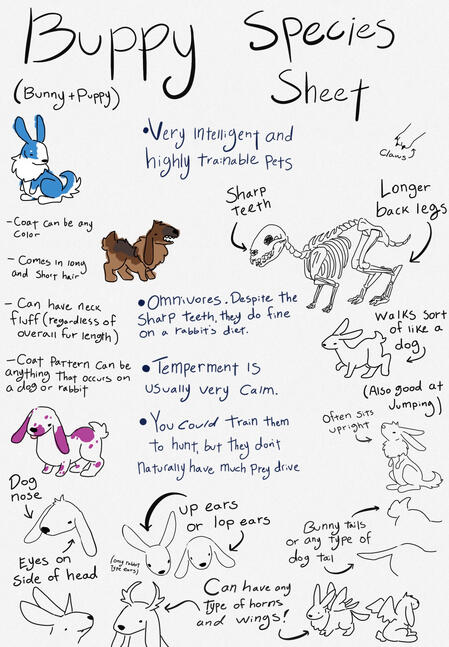 Buppy Species
Sheet
(Bunny + Puppy)
•Very Intelligent and
highly trainable Pets
Claws
Sharp
Teeth
Longer
back legs
-Coat can be any
Color
-Comes in long
and Short hair
-Can have neck
fluff (regardless of
overall fur length)
•Omnivores. Despite the
Sharp teeth, they do fine
on a rabbit's diet.
Walks sort
of like a
dog
(Also good at
Jumping)
-Coat Pattern can be
anything that occurs on
a dog or rabbit
•Temperment is
usually very calm.
•You could train them
to hunt, but they don't
naturally have much prey drive
Often sits
upright
Dog
nose
Eyes on
Side of head
up ears
or lop ears
(any rabbit
type ears)
Bunny tails
or any type of
dog tail
Can have any
Type of horns
and wings!